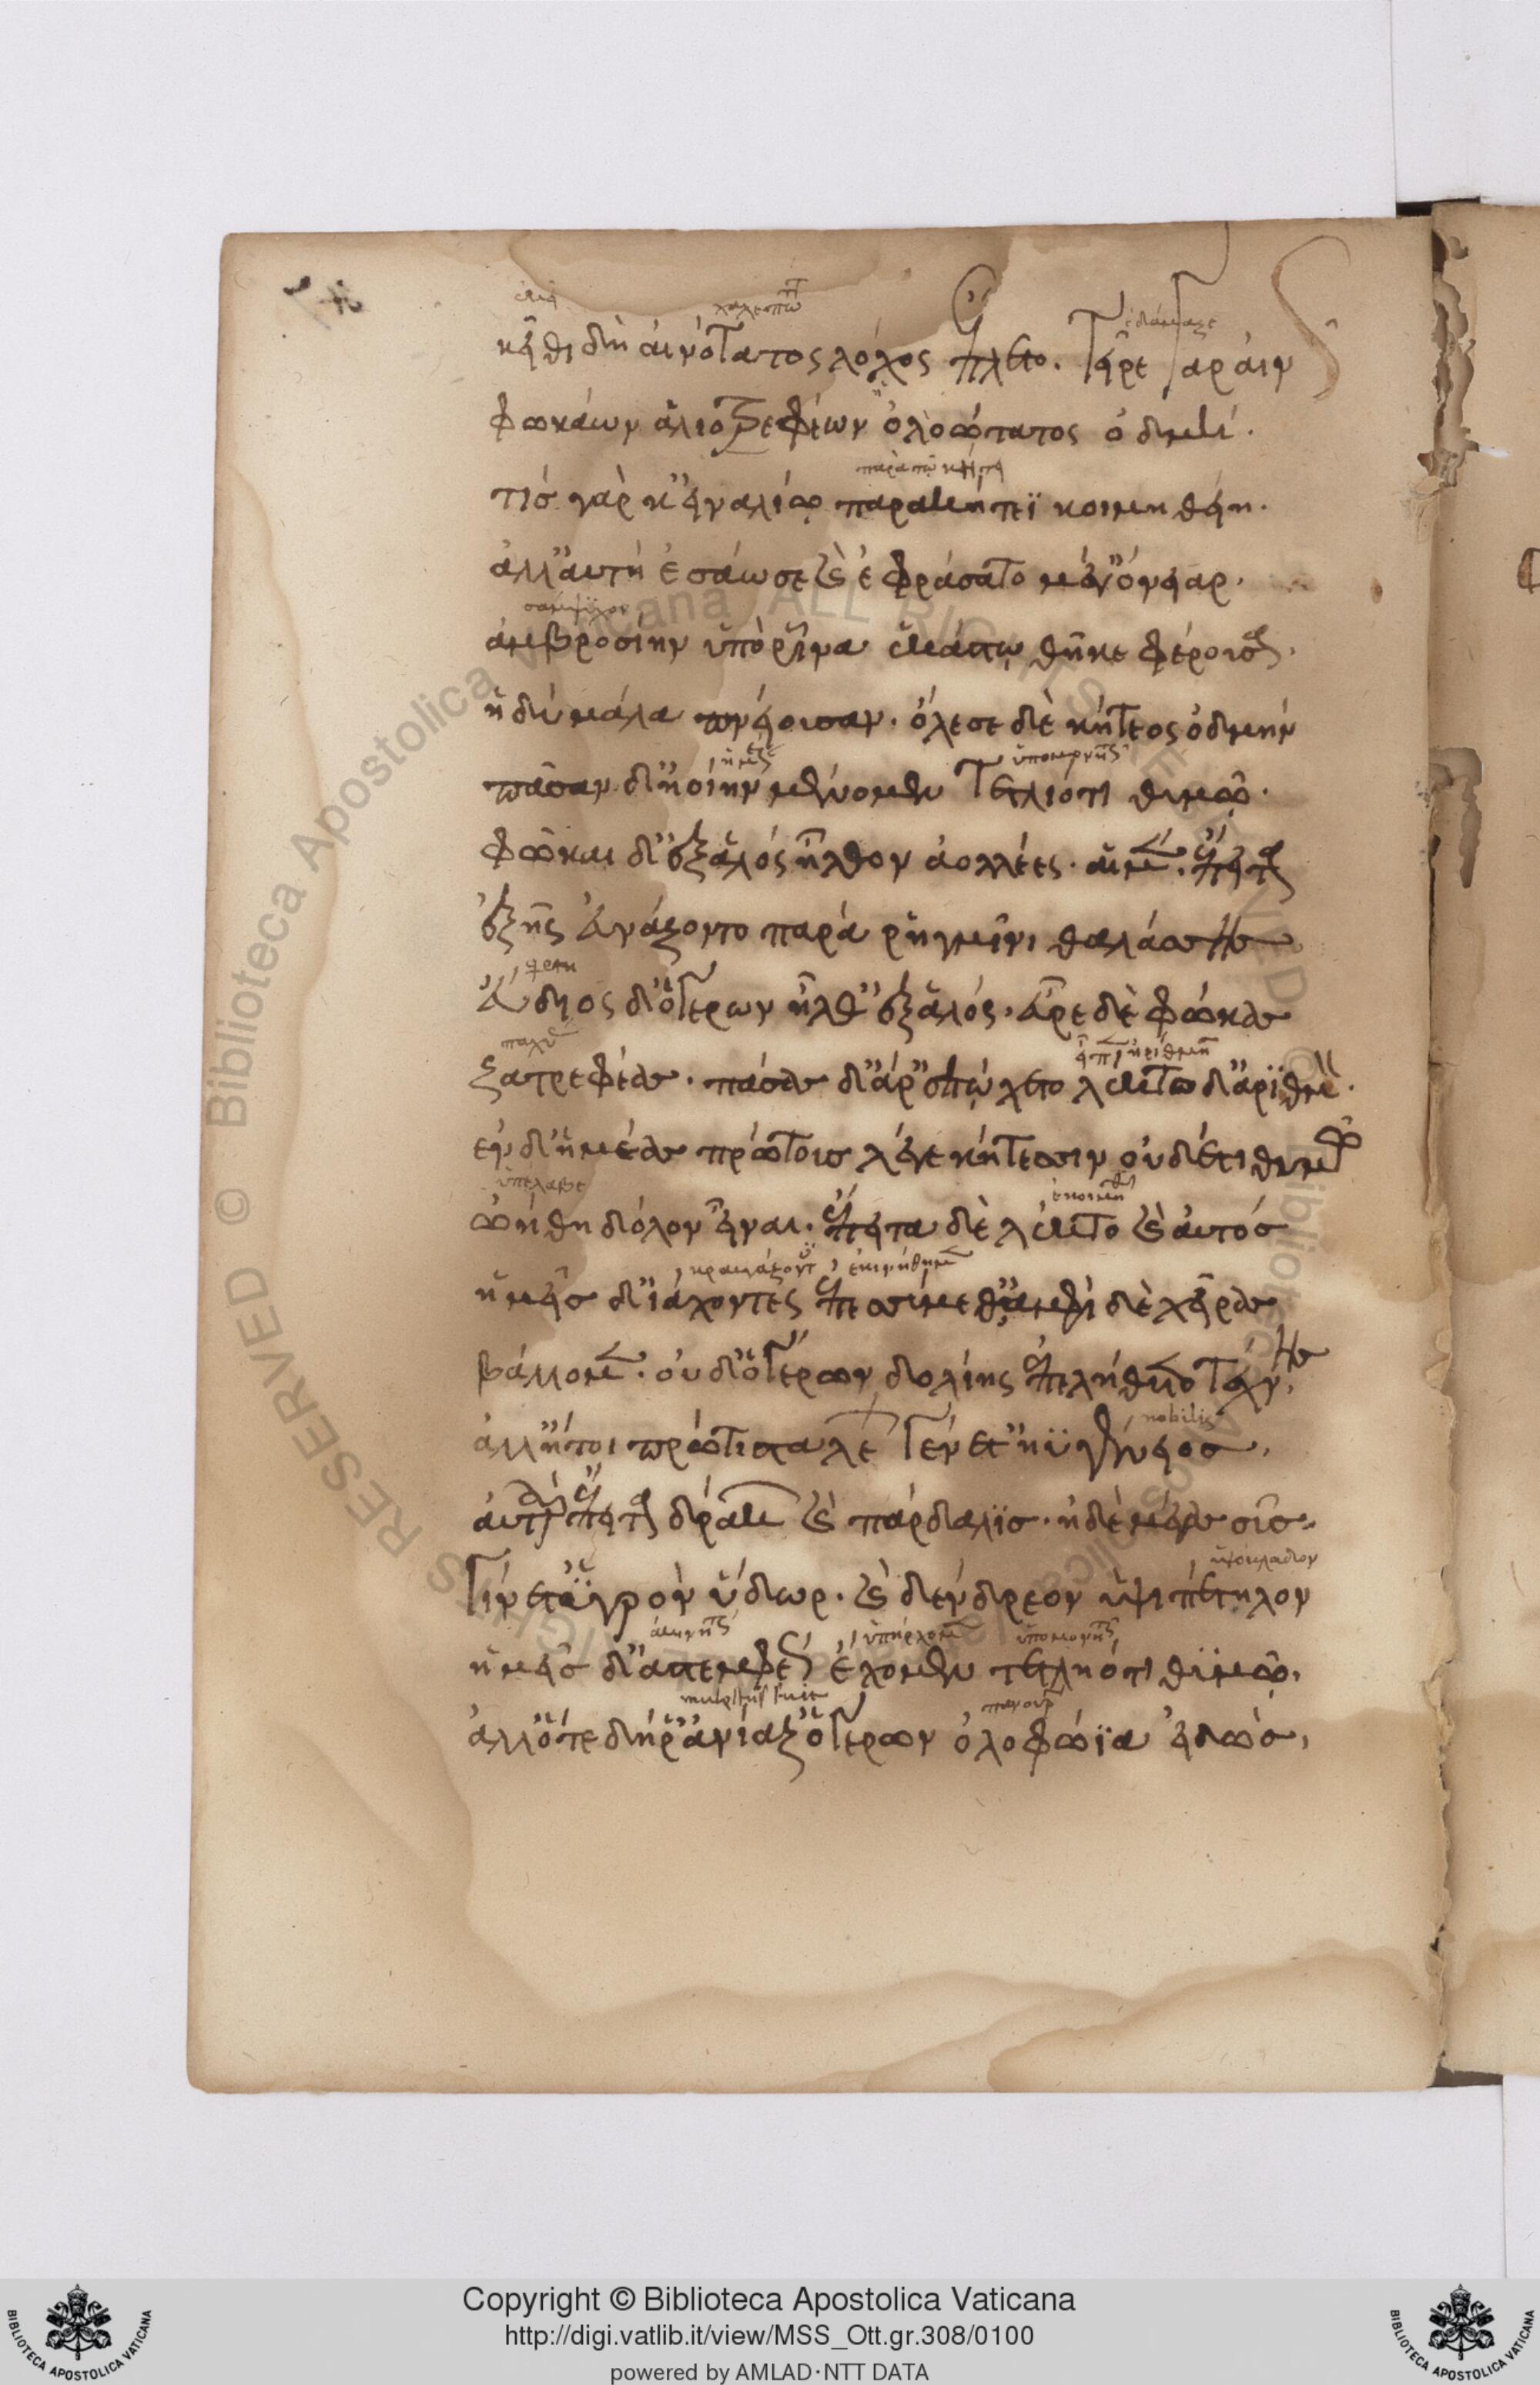 ἐκεῖ
χαλεπώτατ
κεῖθι δὴ αἰνότατος λόχος ἔπλετο. τεῖρε γὰρ αἰν
ἐδάμαζε
φωκάων ἁλιοτρεφέων ὀλοώτατος ὀδμή.
τίς γάρ κ' εἰναλίῳ παρὰ κήτεϊ κοιμηθείη.
παρὰ τῷ κήτει
ἀλλ' αὐτὴ ἐσάωσε καὶ ἐφράσατο μέγ' ὄνειαρ.
ἀμβροσίην ὑπὸ ῥῖνα ἑκάστῳ θῆκε φέρουσα.
ἡδὺ μάλα πνείουσαν. ὄλεσε δὲ κήτεος ὀδμήν
πᾶσαν δ' ἠοίην μένομεν τετλιότι θυμῷ.
φῶκαι δ' ἐξ ἁλὸς ἦλθον ἀολλέες. αἱ μὲν ἔπειτα
ἑξῆς εὐνάζοντο παρὰ ῥηγμῖνι θαλάσσης
ἔνδιος δ' ὁ γέρων ἦλθ' ἐξ ἁλός. εὗρε δὲ φώκας
ζατρεφέας. πάσας δ' ἄρ' ἐπῴχετο λέκτο δ' ἀριθμόν.
ἐν δ' ἡμέας πρώτοις λέγε κήτεσιν οὐδέ τι θυμῷ
ὑπέλαβε
ὠήθη δόλον εἶναι. ἔπειτα δὲ λέκτο καὶ αὐτός
ἡμεῖς δ' ἰάχοντες ἐπεσσύμεθ' ἀμφὶ δὲ χεῖρας
βάλλομεν. οὐδ' ὁ γέρων δολίης ἐπελήθετο τέχνης
ἀλλ' ἤτοι πρώτιστα λέων γένετ' ἠϋγένειος.
nobilis
αὐτὰρ ἔπειτα δράκων καὶ πάρδαλις. ἠδὲ μέγας σῦς
γίνετο δ' ὑγρὸν ὕδωρ. καὶ δένδρεον ὑψιπέτηλον
ὑψίκλαδον
ἡμεῖς δ' ἀστεμφέως ἔχομεν τετληότι θυμῷ.
ἀλλ' ὅτε δή ῥ' ἀνίαζ' ὁ γέρων ὀλοφώϊα εἰδώς.
Copyright © Biblioteca Apostolica Vaticana
http://digi.vatlib.it/view/MSS_Ott.gr.308/0100
powered by AMLAD·NTT DATA